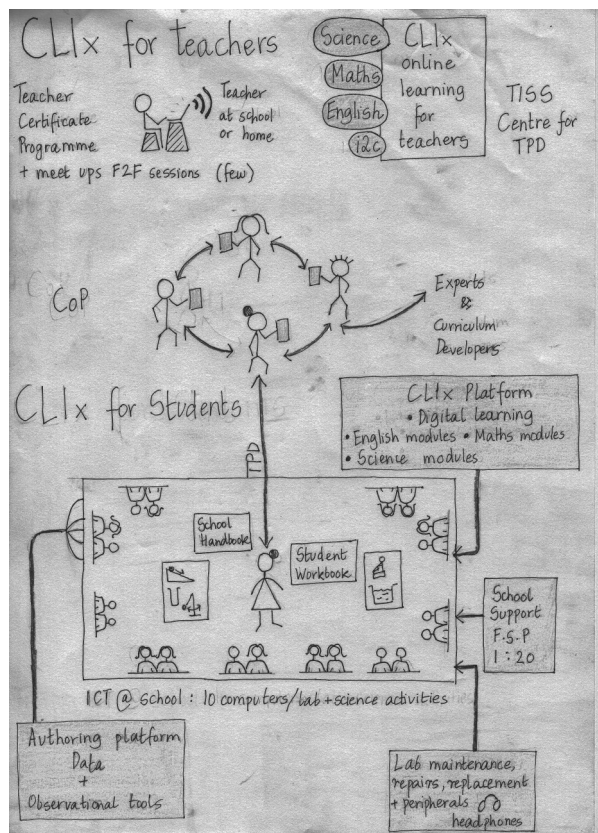 CLIx for teachers
Teacher
Certificate
Programme
+ meet ups F2F sessions (few)
Teacher
at school
or home
Science
Maths
English
i2c
CLIx
online
learning
for
teachers
TISS
Centre for
TPD
CoP
Experts
&
Curriculum
Developers
CLIx for Students
TPD
CLIx Platform
• Digital learning
• English modules • Maths modules
• Science modules
School
Handbook
Student
Workbook
School
Support
F.S.P
1:20
ICT @ school : 10 computers/lab + science activities
Authoring platform
Data
+
Observational tools
Lab maintenance,
repairs, replacement
+ peripherals
headphones